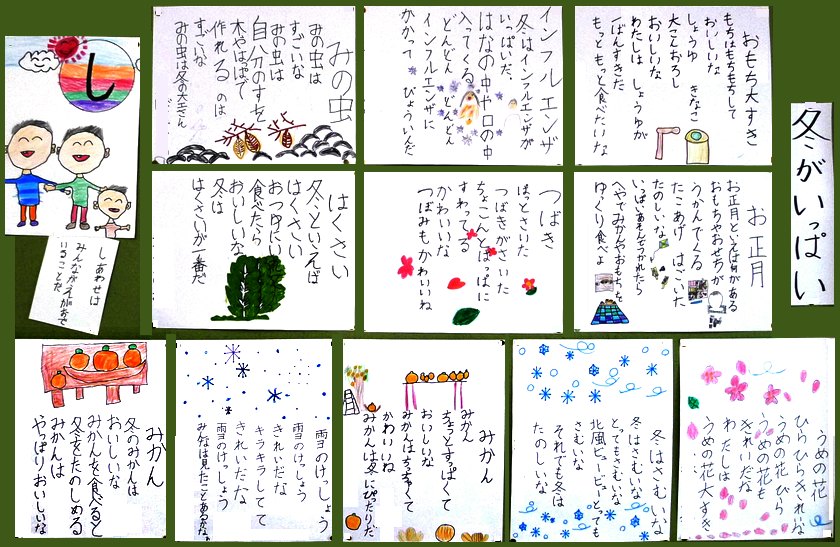 冬がいっぱい
おもち大すき
もちはもちもちして
おいしいな
しょうゆ きなこ
大こおろし
おいしいな
わたしは しょうゆが
一ばんすきだ
もっともっと食べたいな
インフルエンザ
冬はインフルエンザが
いっぱいだ、
はなの中や口の中
入ってくる
どんどん どんどん
インフルエンザに
かかって びょういんだ
みの虫
みの虫は
すごいな
みの虫は
自分のすを
木やはっぱで
作れる のは
すごいな
みの虫は冬の
し
お正月
お正月といえば何がある
おもちやおせちが
うかんでくる
たこあげ はごいた
たのしいな
いっぱいあそんでつかれたら
へやでみかんやおもちを
ゆっくり食べよ
つばき
ほっとさいた
つばきがさいた
ちょこんとはっぱに
すわってる
かわいいな
つぼみもかわいいね
はくさい
冬といえば
はくさい
おつゆに
食べたら
おいしいな
冬は
はくさいが一番だ
しあわせは
みんながえがおで
いることだ
うめの花
ひらひらきれいな
うめの花びら
うめの花も
きれいだな
わたしは
うめの花大すき
冬はさむいな
冬はさむいな
とってもさむいな
北風ピューピューとっても
さむいな
それでも冬は
たのしいな
みかん
みかん
ちょっとすっぱくて
おいしいな
みかんはちっちゃくて
かわいいね
みかんは冬にぴったりだ
雪のけっしょう
雪のけっしょう
きれいだな
キラキラしてて
きれいだな
雪のけっしょう
みんなは見たことあるかな。
みかん
冬のみかんは
おいしいな
みかんを食べると
冬をたのしめる
みかんは
やっぱりおいしいな